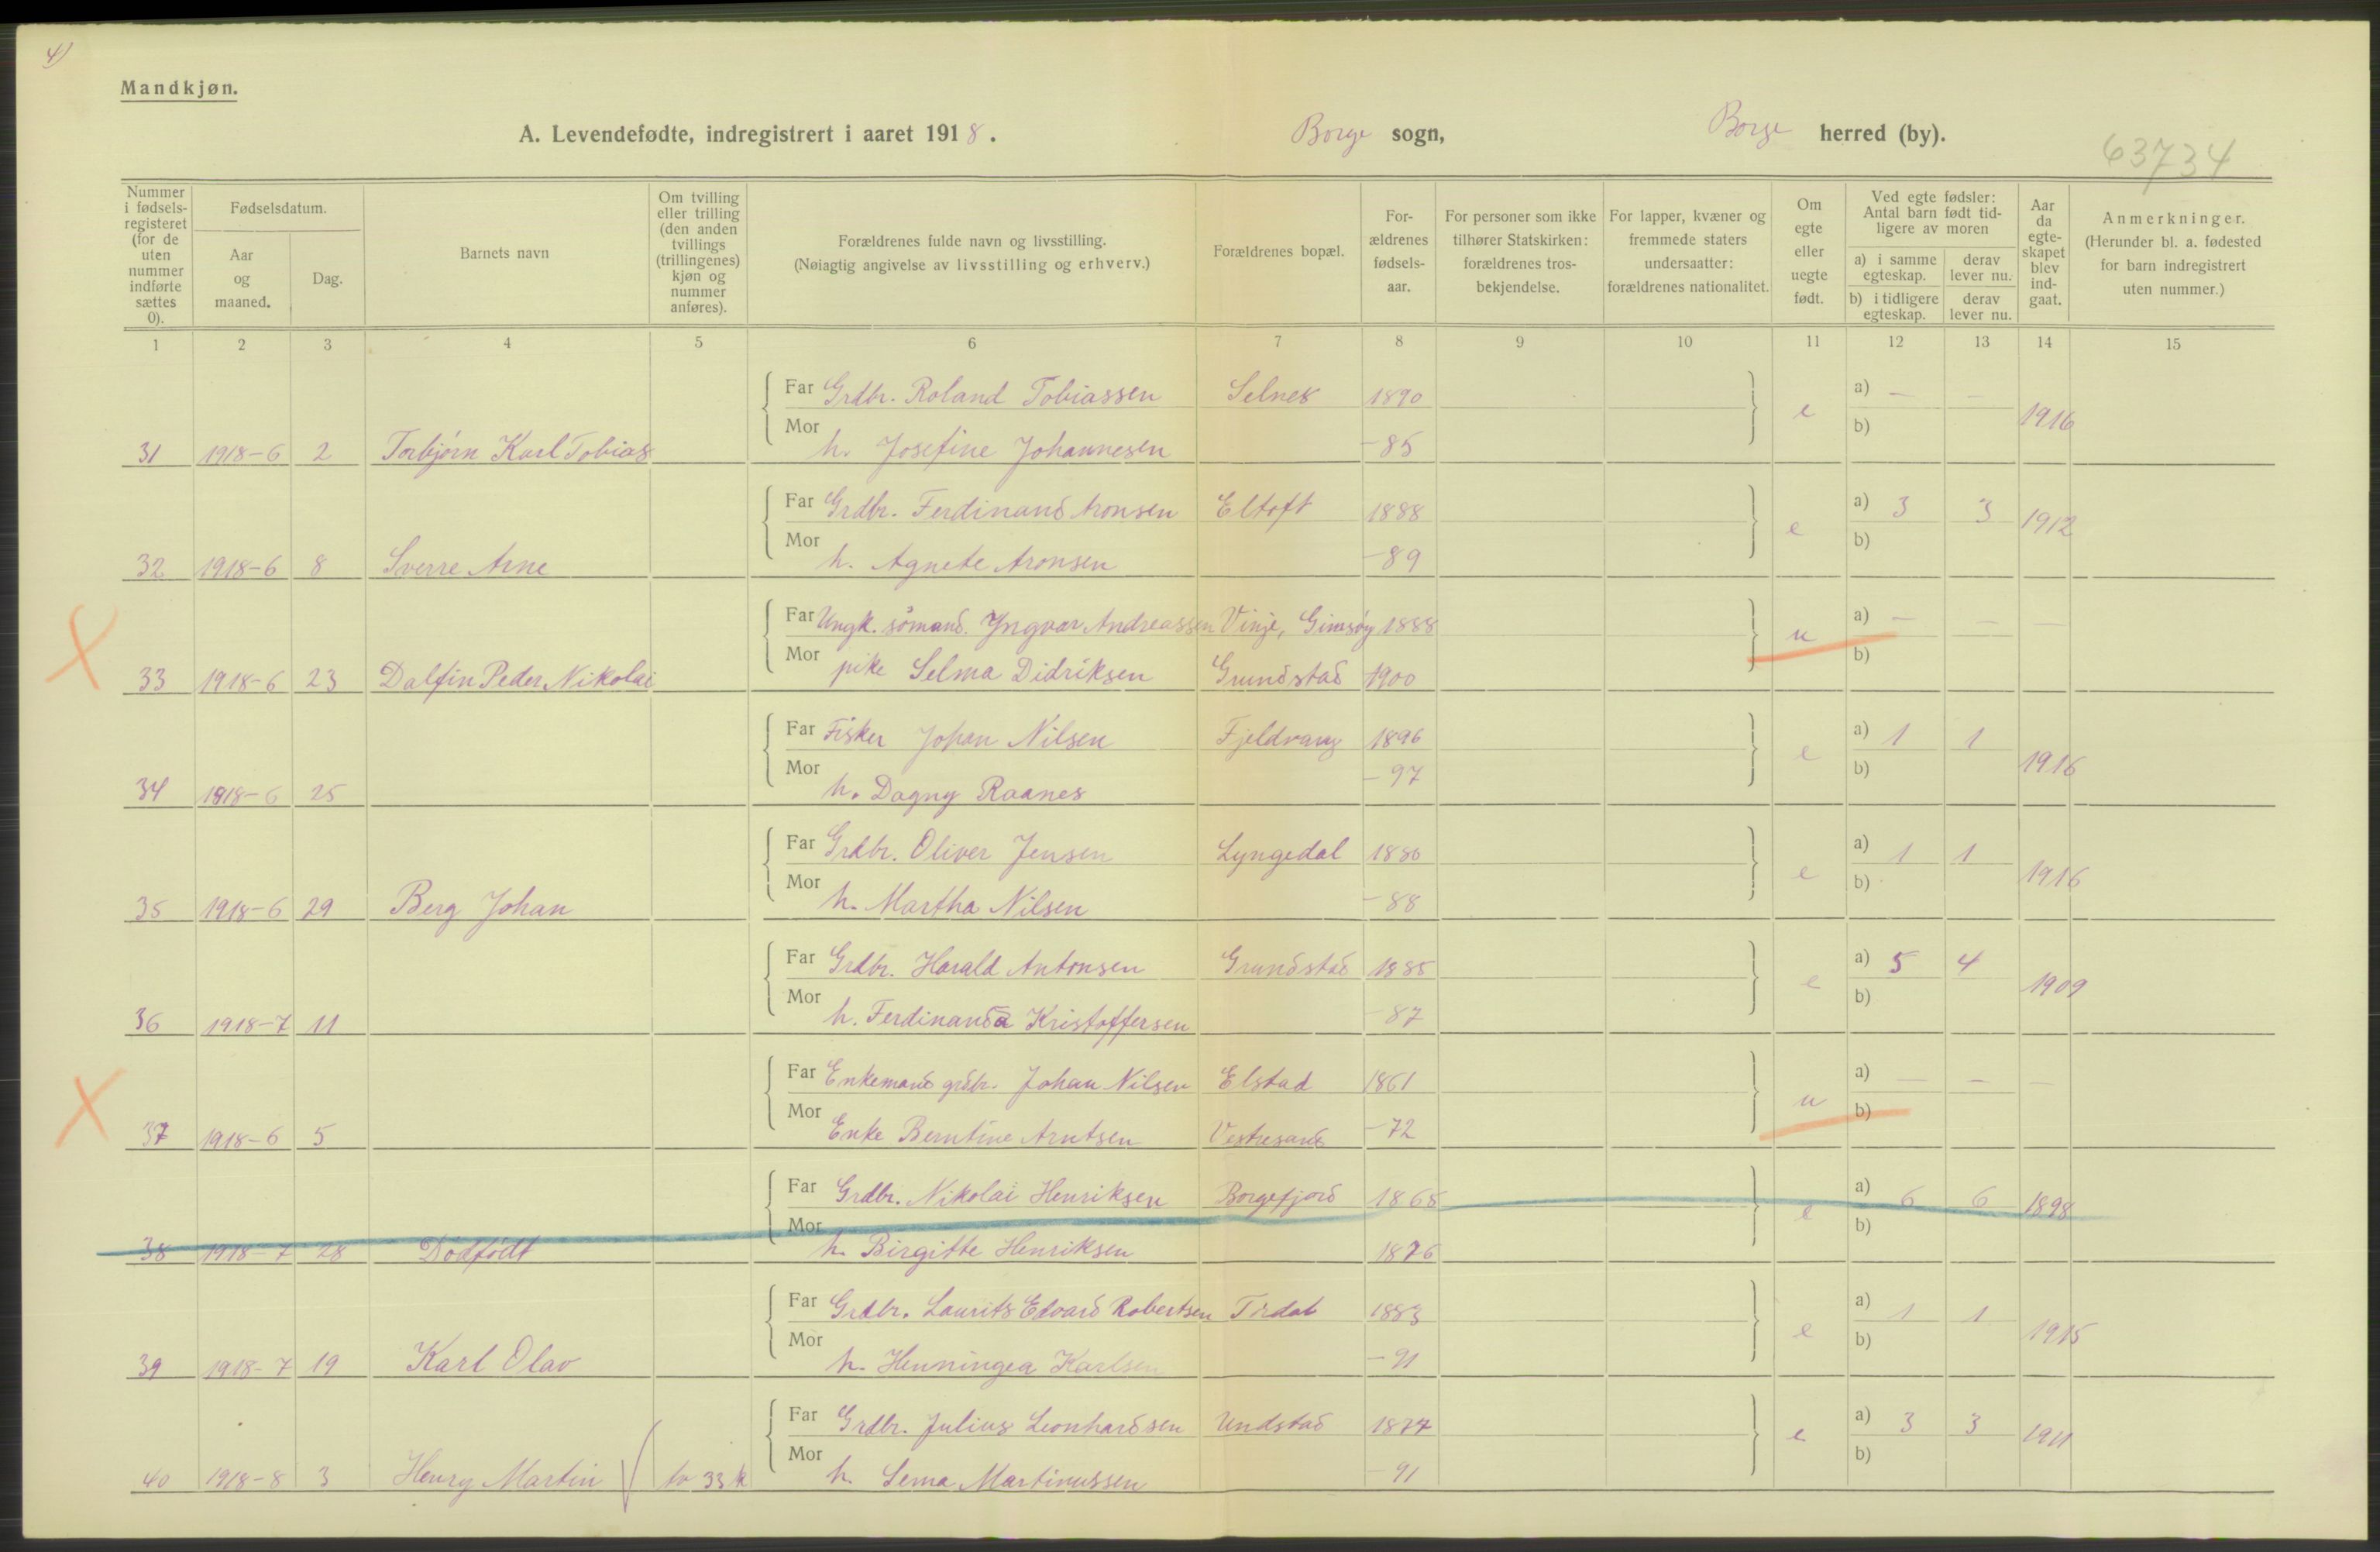 4)
Mandkjøn.
A. Levendefødte, indregistrert i aaret 1918. Borge sogn, Borge herred (by).
63734
Nummer i fødsels-registeret (for de uten nummer indførte sættes 0).
Fødselsdatum.
Aar og maaned.
Dag.
Barnets navn
Om tvilling eller trilling (den anden tvillings (trillingenes) kjøn og nummer anføres).
Forældrenes fulde navn og livsstilling.
(Nøiagtig angivelse av livsstilling og erhverv.)
Forældrenes bopæl.
For-ældrenes fødsels-aar.
For personer som ikke tilhører Statskirken: forældrenes tros-bekjendelse.
For lapper, kvæner og fremmede staters undersaatter: forældrenes nationalitet.
Om egte eller uegte født.
Ved egte fødsler: Antal barn født tid-ligere av moren
a) i samme egteskap.
derav lever nu.
b) i tidligere egteskap.
derav lever nu.
Aar da egte-skapet blev ind-gaat.
Anmerkninger.
(Herunder bl. a. fødested for barn indregistrert uten nummer.)
1 2 3 4 5 6 7 8 9 10 11 12 13 14 15
Far Grdbr. Roland Tobiassen Selnes 1890 e a) — — 1916
31 1918-6 2 Torbjørn Karl Tobias Mor h. Josefine Johannesen -85 b)
Far Grdbr. Ferdinand Aronsen Eltoft 1888 e a) 3 3 1912
32 1918-6 8 Sverre Arne Mor h. Agnete Aronsen -89 b)
Far Ungk. sömand. Yngvar Andreassen Vinje, Gimsøy 1888 u a) — — —
33 1918-6 23 Dalfin Peder Nikolai Mor pike Selma Didriksen Grundstad 1900 b)
Far Fisker Johan Nilsen Fjeldvang 1896 e a) 1 1 1916
34 1918-6 25 Mor h. Dagny Raanes -97 b)
Far Grdbr. Oliver Jensen Lyngedal 1886 e a) 1 1 1916
35 1918-6 29 Berg Johan Mor h. Martha Nilsen -88 b)
Far Grdbr. Harald Antonsen Grundstad 1885 e a) 5 4 1909
36 1918-7 11 Mor h. Ferdinanda Kristoffersen -87 b)
Far Enkemand grdbr. Johan Nilsen Elstad 1861 u a) — — —
37 1918-6 5 Mor Enke Berntine Arntsen Vestresand -72 b)
Far Grdbr. Nikolai Henriksen Borgefjord 1865 e a) 6 6 1898
38 1918-7 28 Dödfödt Mor h. Birgitte Henriksen 1876 b)
Far Grdbr. Laurits Edvard Robertsen 1883 e a) 1 1 1915
39 1918-7 19 Karl Olav Mor h. Henningea Karlsen -91 b)
Far Grdbr. Julius Leonhardsen Undstad 1877 e a) 3 3 1911
40 1918-8 3 Henry Martin tv 33 k Mor h. Lema Martinussen -91 b)